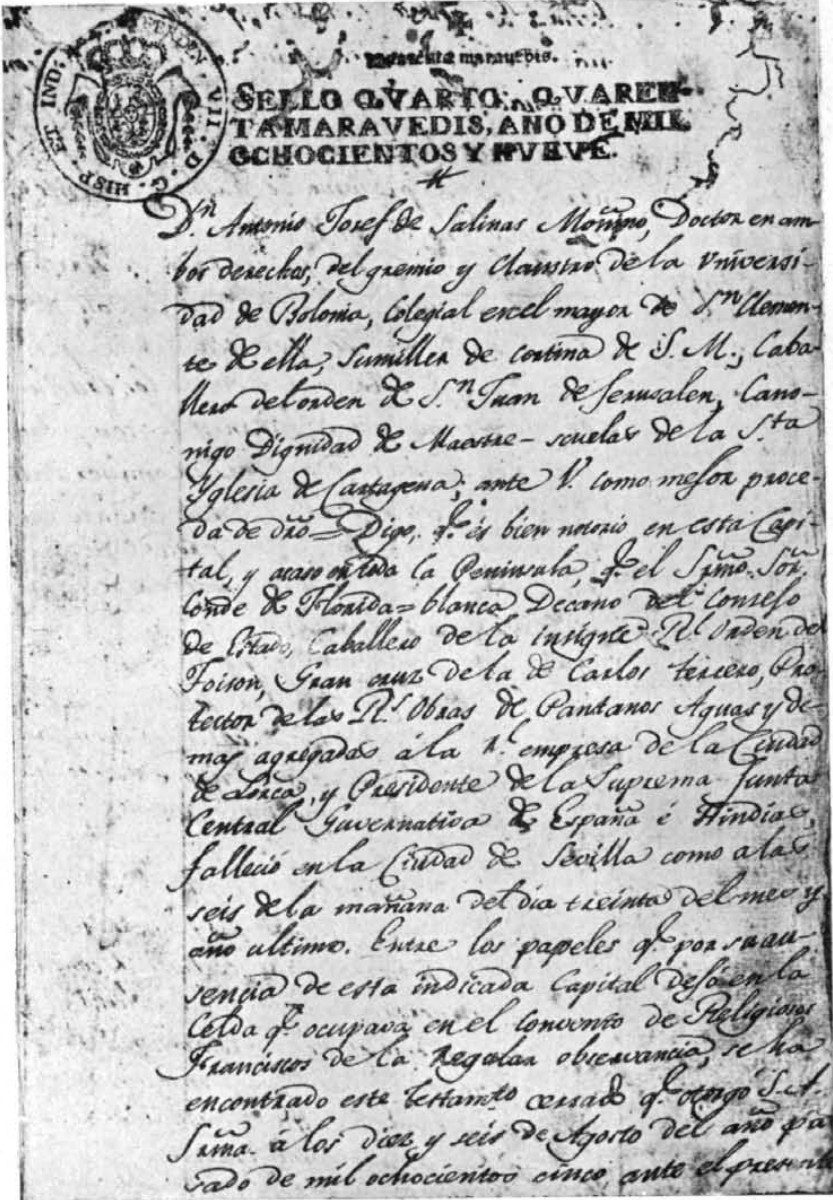 HISP · ET IND · FERDIN · VII · D · G ·
Quarenta maravedis.
SELLO QVARTO, QVAREN-
TA MARAVEDIS, AÑO DE MIL
OCHOCIENTOS Y NVEVE.
Dⁿ. Antonio Josef de Salinas Moñino, Doctor en am-
bos derechos, del gremio y Claustro de la Vniversi-
dad de Bolonia, Colegial en el mayor de Sⁿ. Clemen-
te de ella, Sumiller de cortina de S. M., Caba-
llero del orden de Sⁿ. Juan de Jerusalen, Cano-
nigo Dignidad de Maestre-scuelas de la Sta
Yglesia de Cartagena; ante V. como mejor proce-
da de dro = Digo, q.e és bien notorio en esta Capi-
tal, y acaso en toda la Peninsula, q.e el Srmo. Sor.
Conde de Florida=blanca, Decano del Consejo
de Estado, Caballero de la insigne Rl. Orden del
Toison, Gran cruz de la de Carlos tercero, Pro-
tector de las Rs. Obras de Pantanos Aguas y de-
mas agregadas á la Rl. empresa de la Ciudad
de Lorca, y Presidente de la Suprema Junta
Central Guvernativa de España é Yndias,
falleció en la Ciudad de Sevilla como a las
seis de la mañana del dia treinta del mes y
año ultimo. Entre los papeles q.e por su au-
sencia de esta indicada Capital dejó en la
Celda q.e ocupava en el Convento de Religiosos
Franciscos de la Regular observancia, se ha
encontrado este testamto. cerrado q.e otorgó S. A.
Srma. á los diez y seis de Agosto del año pa-
sado de mil ochocientos cinco, ante el presente